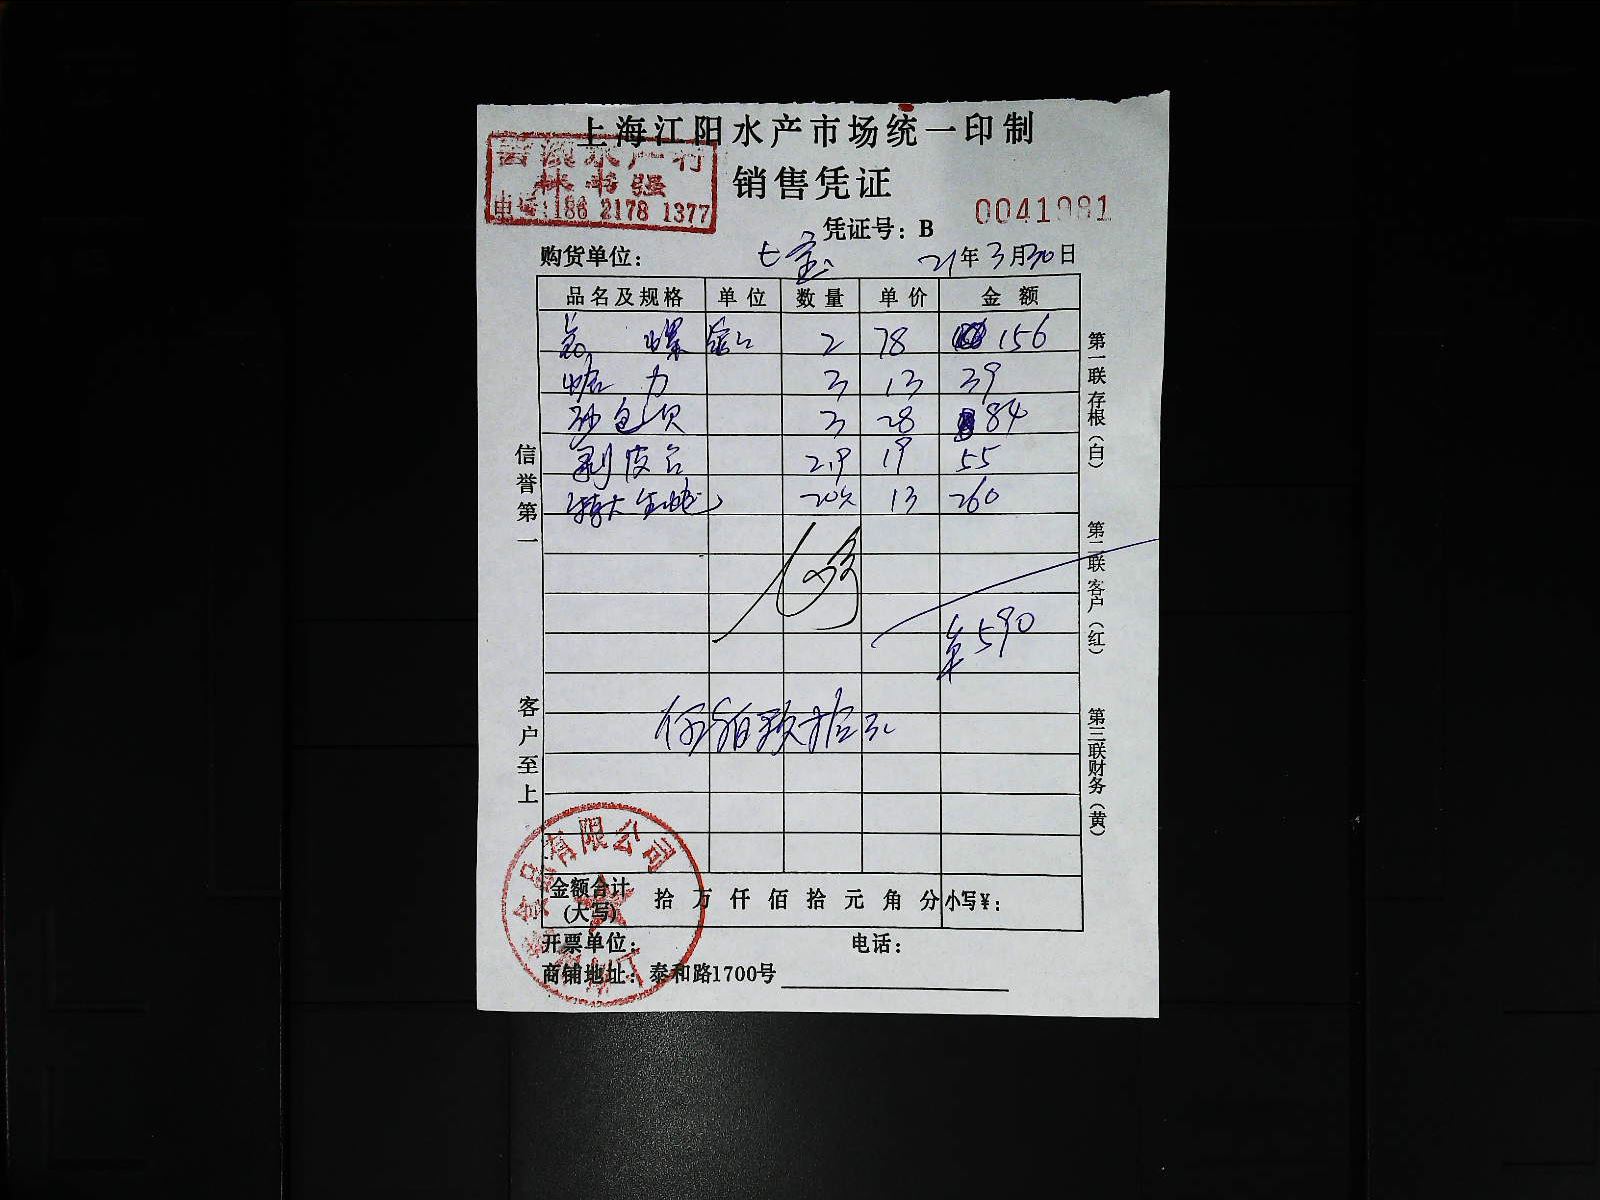 上海江阳水产市场统一印制
林书强
电话:186 2178 1377
销售凭证
0041981
凭证号：B
购货单位： 七宝 21年3月30日
品名及规格 单位 数量 单价 金额
螺 2 78 156
蛤 3 13 39
砂包贝 3 28 84
剥皮 2.9 19 55
特大生蚝 20只 13 260
590
伍佰玖拾元
信誉第一
客户至上
第一联存根（白）
第二联客户（红）
第三联财务（黄）
食品有限公司
金额合计
(大写) 拾 万 仟 佰 拾 元 角 分 小写¥：
开票单位： 电话：
商铺地址：泰和路1700号